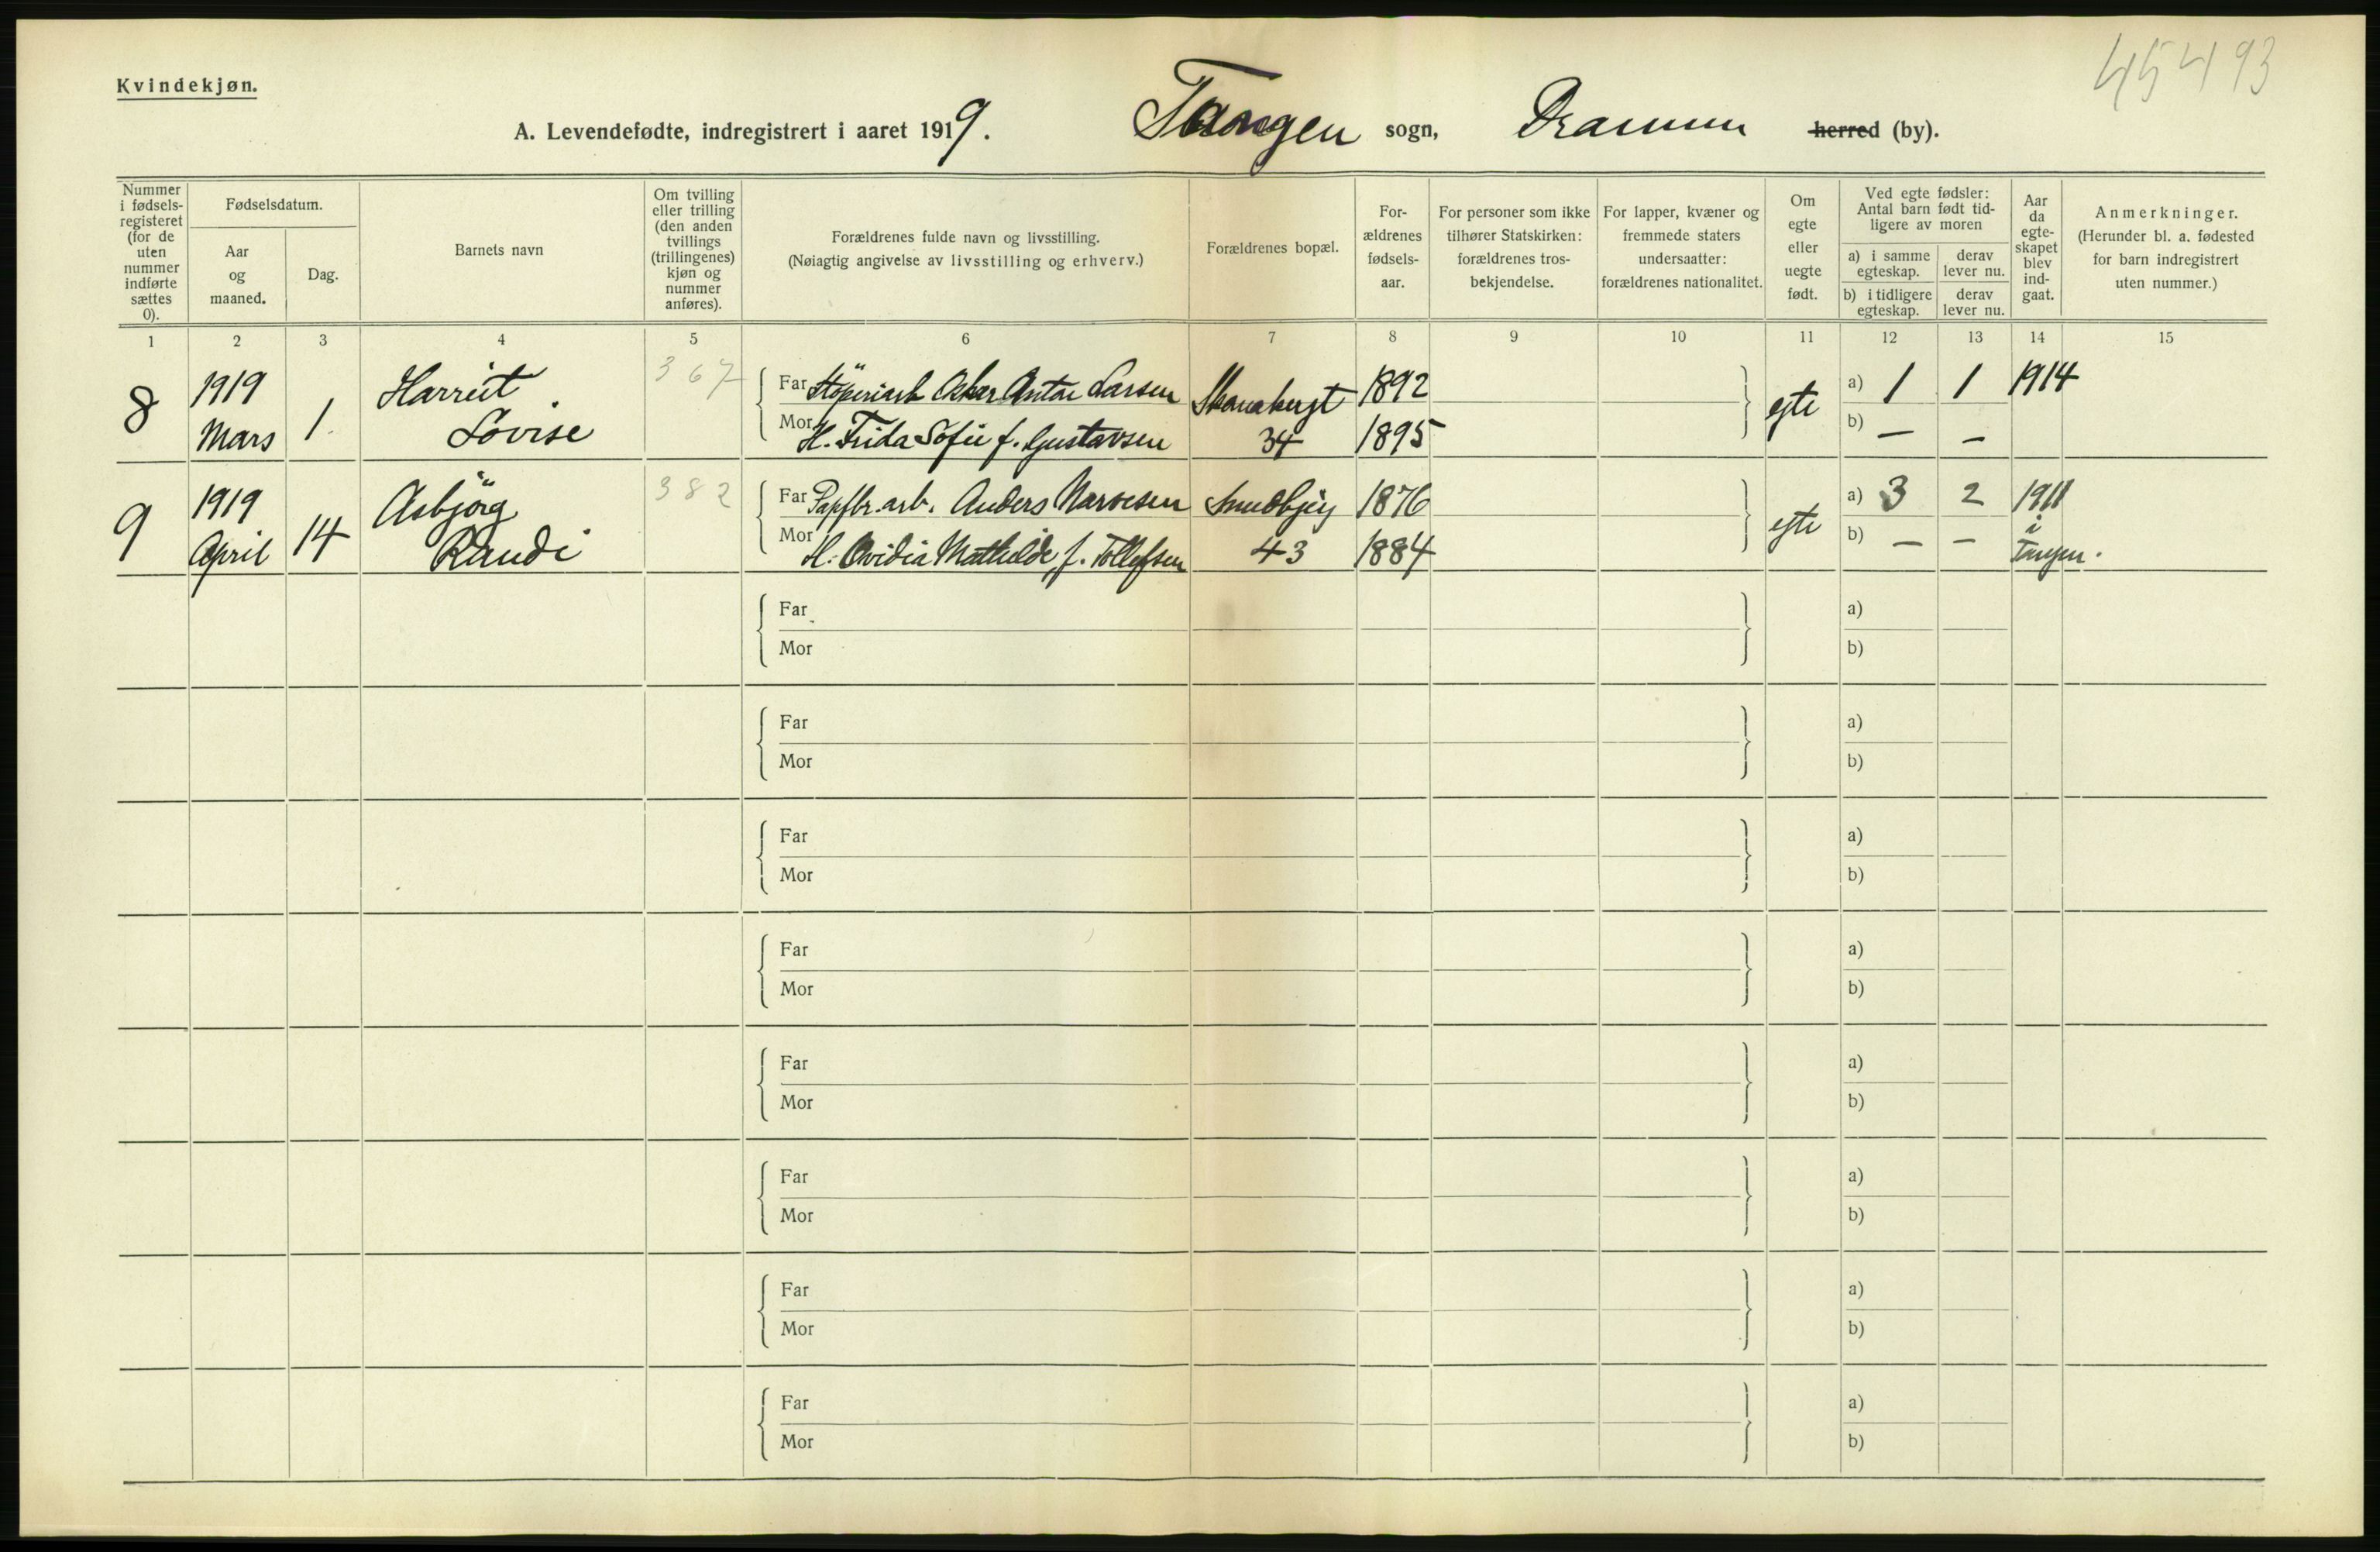 45493
Kvindekjøn.
A. Levendefødte, indregistrert i aaret 1919. Tangen sogn, Drammen herred (by).
Nummer i fødsels-registeret (for de uten nummer indførte sættes 0).
Fødselsdatum.
Aar og maaned.
Dag.
Barnets navn
Om tvilling eller trilling (den anden tvillings (trillingenes) kjøn og nummer anføres).
Forældrenes fulde navn og livsstilling.
(Nøiagtig angivelse av livsstilling og erhverv.)
Forældrenes bopæl.
For-ældrenes fødsels-aar.
For personer som ikke tilhører Statskirken: forældrenes tros-bekjendelse.
For lapper, kvæner og fremmede staters undersaatter: forældrenes nationalitet.
Om egte eller uegte født.
Ved egte fødsler: Antal barn født tid-ligere av moren
a) i samme egteskap.
derav lever nu.
b) i tidligere egteskap.
derav lever nu.
Aar da egte-skapet blev ind-gaat.
Anmerkninger.
(Herunder bl. a. fødested for barn indregistrert uten nummer.)
1 2 3 4 5 6 7 8 9 10 11 12 13 14 15
8 1919 Mars 1. Harriet Lovise 367
Far Støperiarb Oskar Anton Larsen 1892
Mor H. Frida Sofie f. Gustavsen 34 1895
egte a) 1 1 1914
b) — —
9 1919 April 14 Asbjörg Randi 382
Far Papfbr. arb. Anders Narvesen 1876
Mor H. Ovidia Mathilde, f. Tollefsen 43 1884
egte a) 3 2 1911 i Tangen.
b) — —
Far a)
Mor b)
Far a)
Mor b)
Far a)
Mor b)
Far a)
Mor b)
Far a)
Mor b)
Far a)
Mor b)
Far a)
Mor b)
Far a)
Mor b)